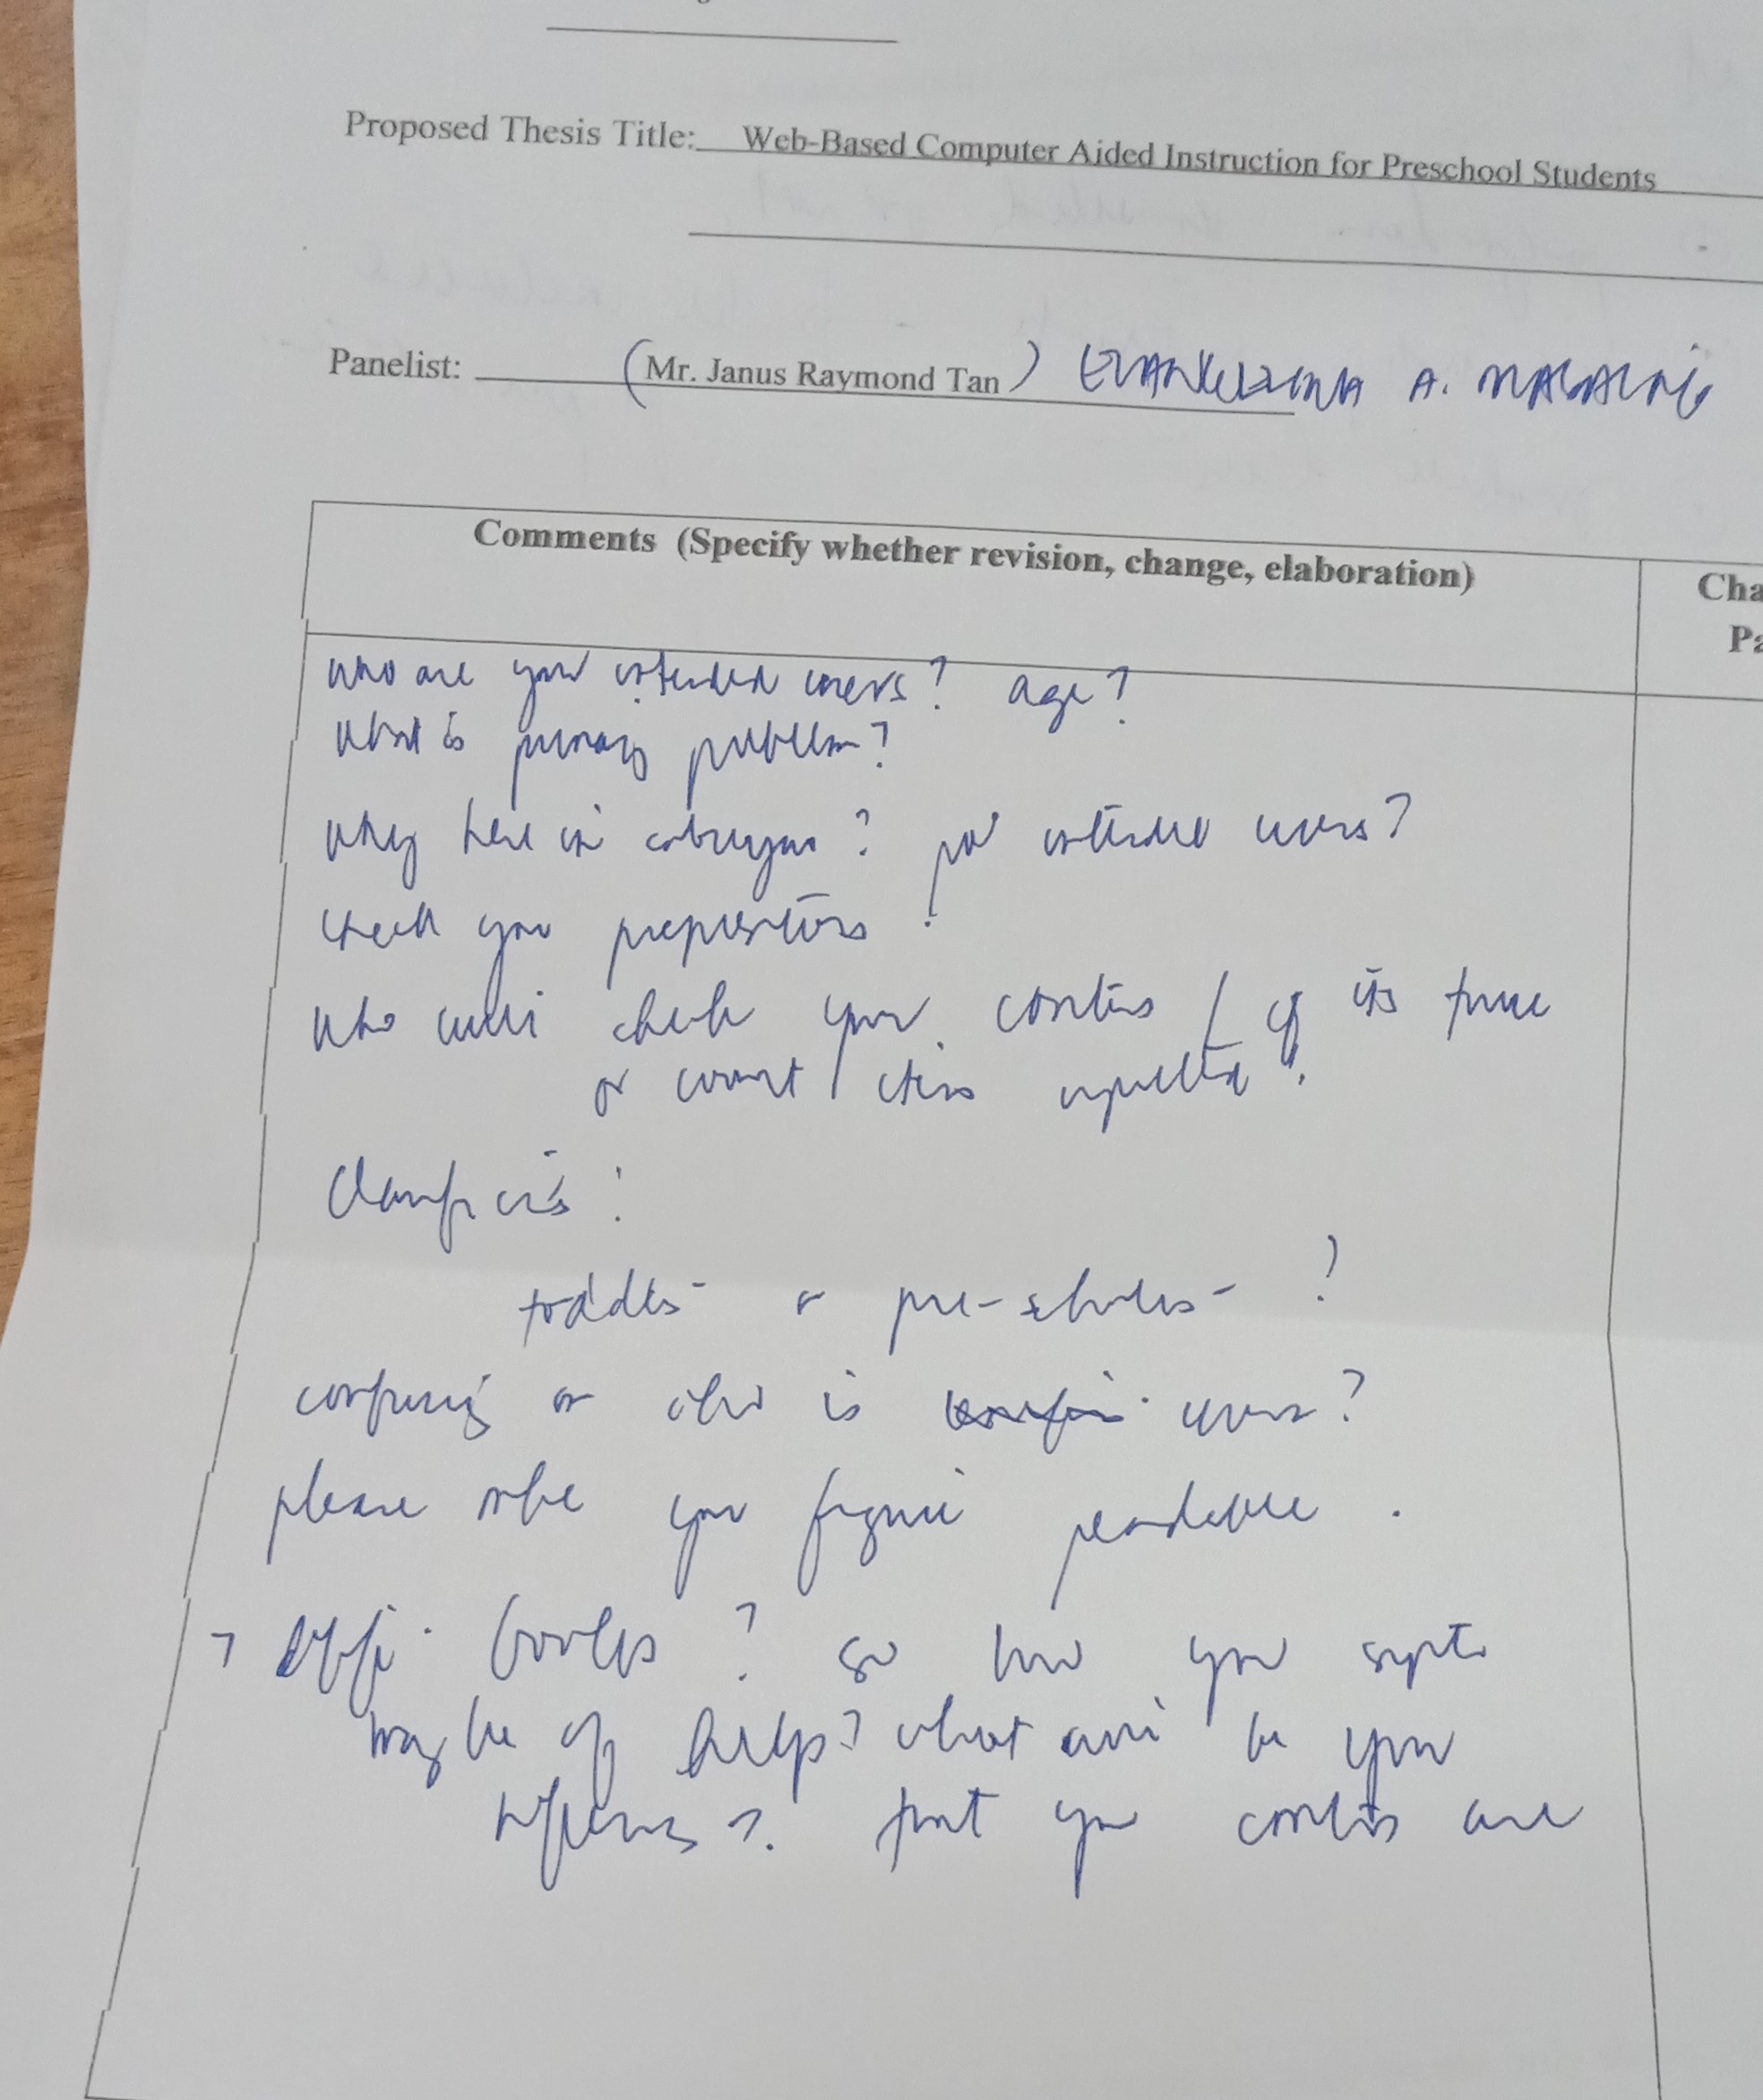 Proposed Thesis Title: Web-Based Computer Aided Instruction for Preschool Students
Panelist: (Mr. Janus Raymond Tan) A.
Comments (Specify whether revision, change, elaboration)
Cha
Pa
who are your intended users? age?
What is primary problem?
Why here in cabuyao? intended users?
check your prepositions
who will check your contents / if its true
or correct / inputted?
toddlers or pre-schoolers?
confusing on who is users?
please make your figure readable.
books? so how your system
maybe of help? what will be your
references? that your contents are